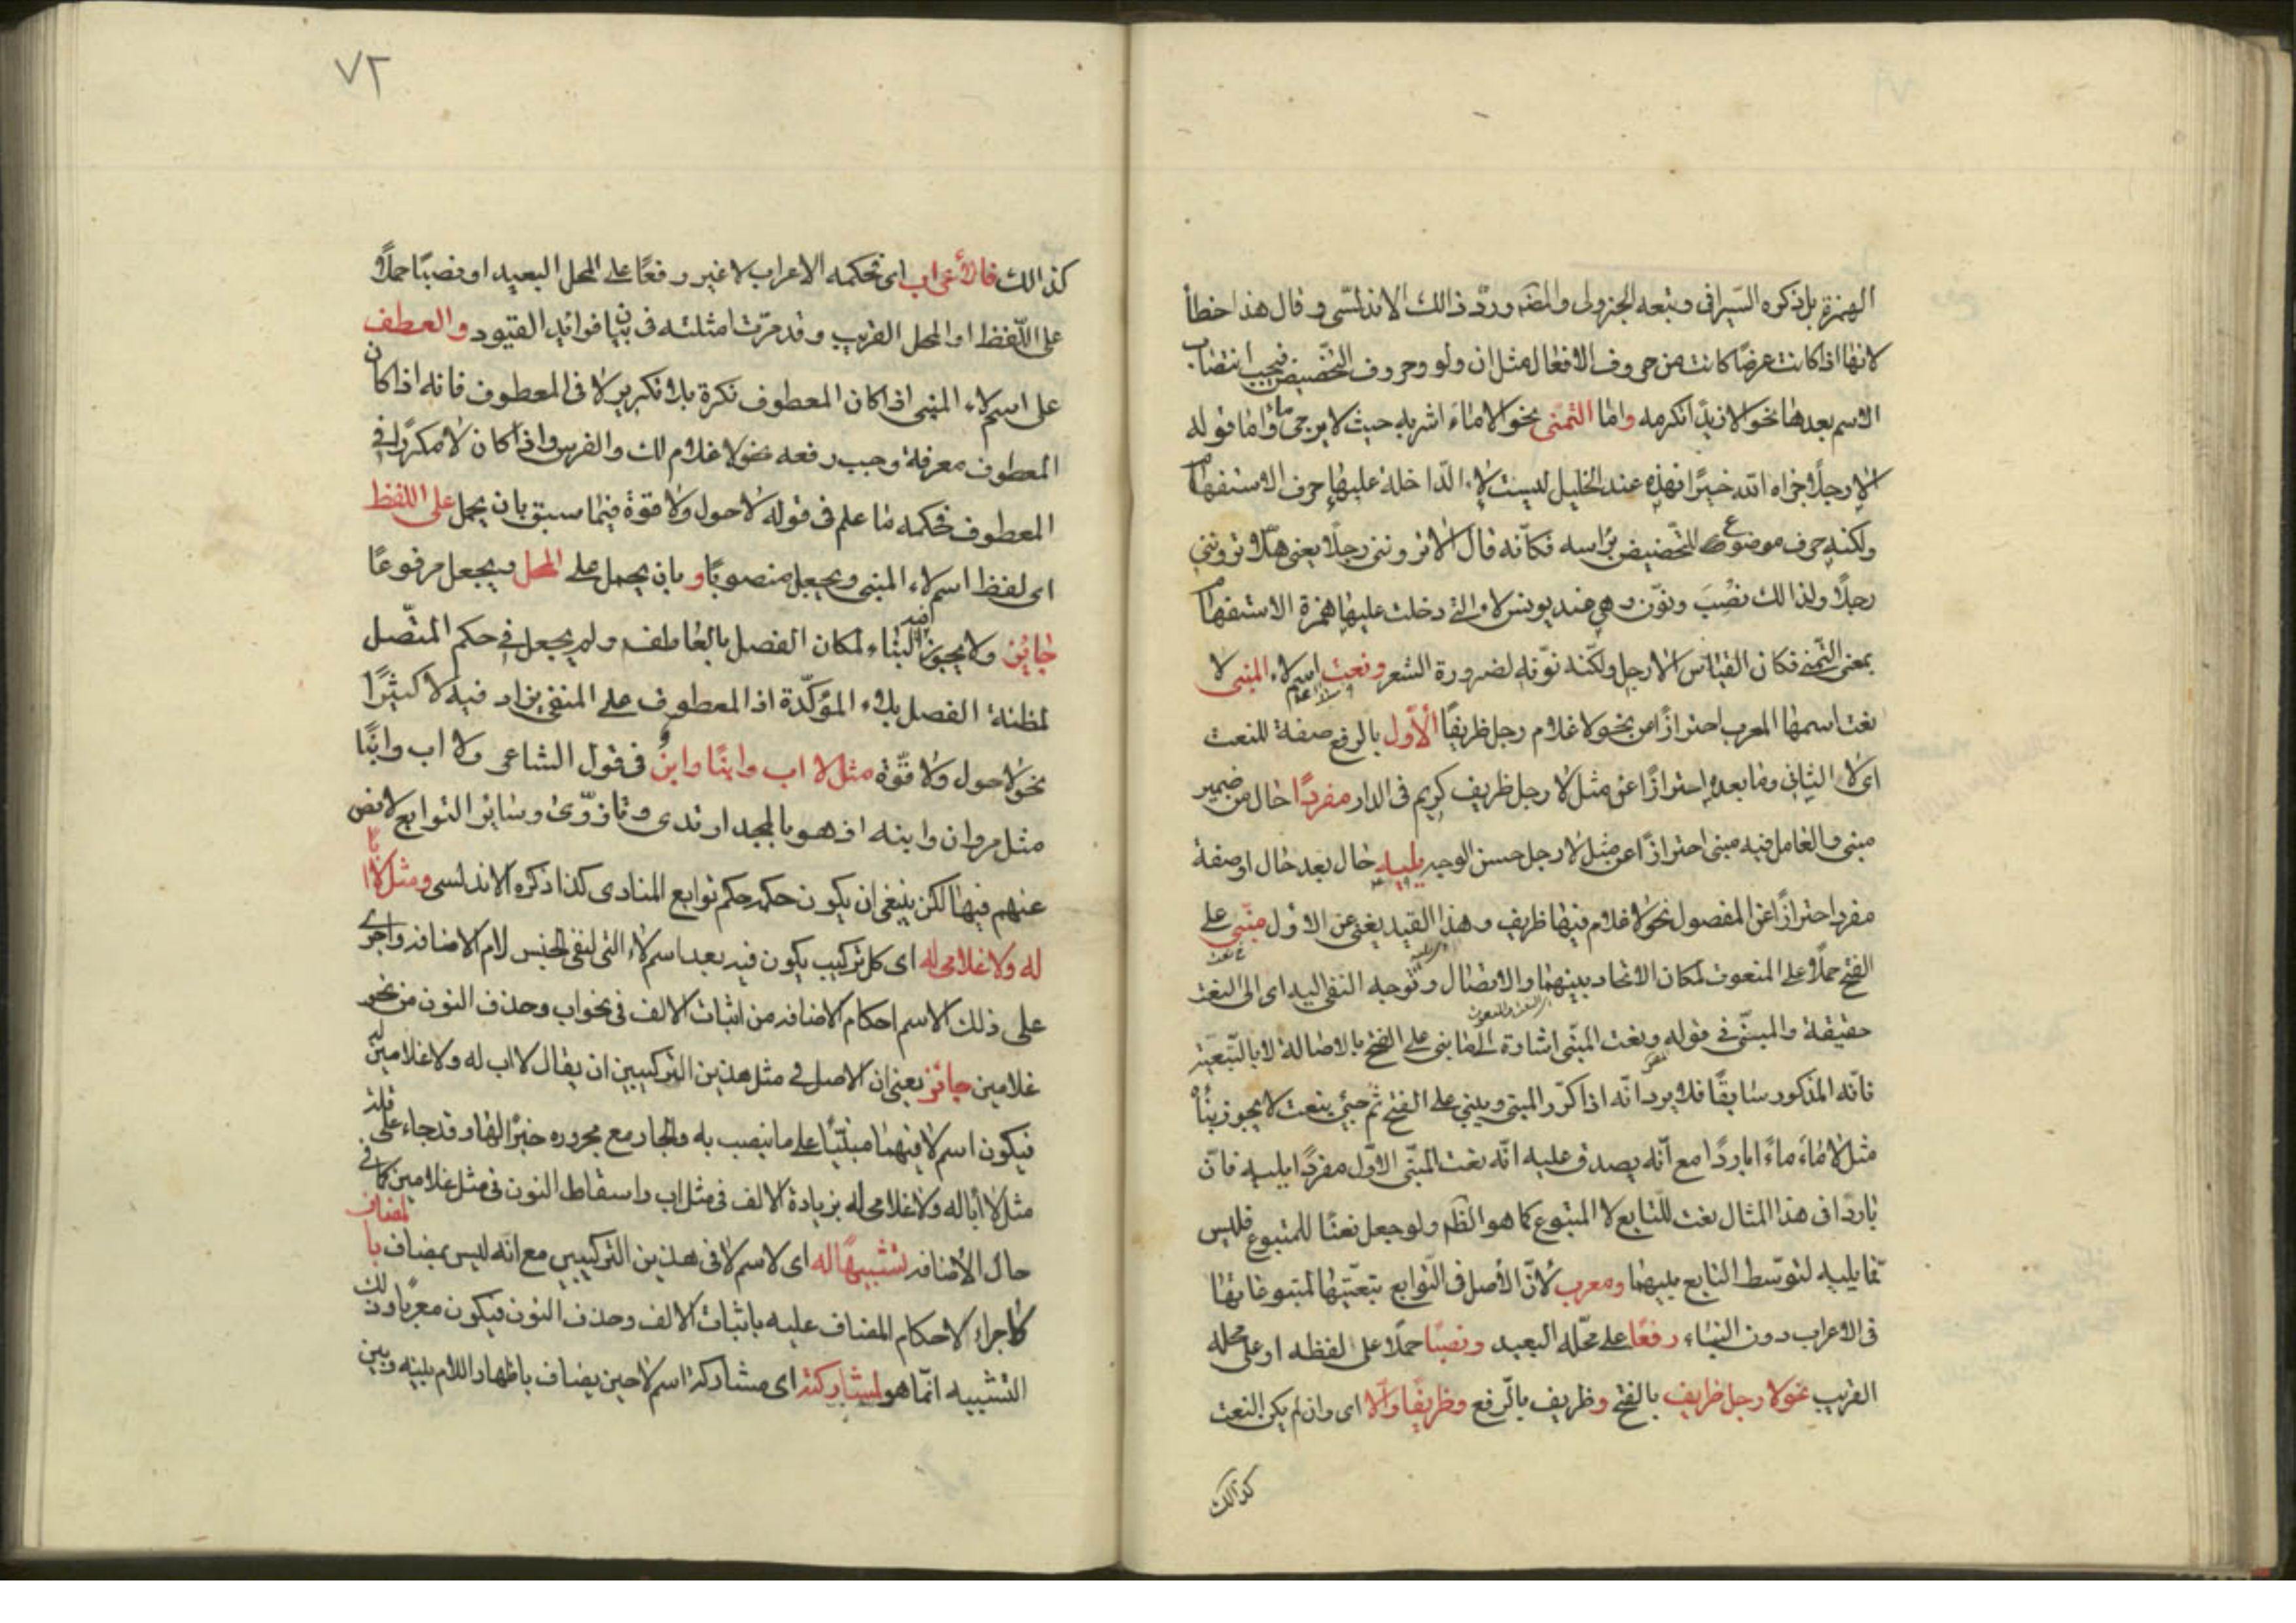 الهمزة بل ذكره السيرافى وتبعه الجزولى والمصم وردّ ذالك الاندلسى وقال هذا خطأ
لانها اذا كانت عرضا كانت من حروف الافعال مثل ان ولو وحروف التحضيض فيجب انتصاب
الاسم بعدها نحو الا زيدا تكرمه واما التمنى نحو الا ماء اشربه حيث لا يرجى ماء واما قوله
الا رجلا جزاه الله خيرا فهذه عند الخليل ليست لاء الداخلة عليها حرف الاستفهام
ولكنه حرف موضوع للتحضيض براسه فكانه قال الا تروننى رجلا يعنى هلا تروننى
رجلا ولذالك نصب ونون وهى عند يونس لا والتى دخلت عليها همزة الاستفهام
بمعنى التمنى فكان القياس الا رجل ولكنه نوّنه لضرورة الشعر ونعت اسم لاء المبنى لا
نعت اسمها المعرب احترازا من نحو لا غلام رجل ظريفا الأول بالرفع صفة للنعت
اى لا الثانى وما بعده احترازا عن مثل لا رجل ظريف كريم فى الدار مفردا حال من ضمير
مبنى والعامل فيه مبنى احترازا عن مثل لا رجل حسن الوجه يليه حال بعد حال او صفة
مفرد احترازا عن المفصول نحو لا غلام فيها ظريف وهذا القيد يغنى عن الاول مبنى على
الفتح حملا على المنعوت لمكان الاتحاد بينهما والاتصال وتوجه النفى اليه اى الى النعت
حقيقة والمبنى فى قوله ونعت المبنى اشارة الى ما بنى على الفتح بالاصالة لا بالتبعية
فانه المذكور سابقا فلا يرد انه اذا كرر المبنى وبنى على الفتح ثم جئ بنعت لا يجوز بناؤه
مثل لا ماء ماء باردا مع انه يصدق عليه انه نعت المبنى الاول مفردا يليه فان
باردا فى هذا المثال نعت للتابع لا المتبوع كما هو الظم ولو جعل نعتا للمتبوع فليس
مما يليه لتوسط التابع بينهما ومعرب لان الأصل فى التوابع تبعيتها لمتبوعاتها
فى الاعراب دون البناء رفعا على محله البعيد ونصبا حملا على لفظه او على محله
القريب نحو لا رجل ظريف بالفتح وظريف بالرفع وظريفا والا اى وان لم يكن النعت
كذالك
٧٢
كذالك فالأعراب اى فحكمه الاعراب لا غير رفعا على المحل البعيد او نصبا حملا
على اللفظ او المحل القريب وقد مرت امثلته فى بيان فوائد القيود والعطف
على اسم لاء المبنى اذا كان المعطوف نكرة بلا تكرير لا فى المعطوف فانه اذا كان
المعطوف معرفة وجب رفعه نحو لا غلام لك والفرس واذا كان لا مكررا فى
المعطوف فحكمه ما علم فى قوله لا حول ولا قوة فيما سبق بان يحمل على اللفظ
اى لفظ اسم لاء المبنى ويجعل منصوبا و بان يحمل على المحل ويجعل مرفوعا
جايز ولا يجوز فيه البناء لمكان الفصل بالعاطف ولم يجعل فى حكم المتصل
لمظنة الفصل بلاء المؤكدة اذ المعطوف على المنفى يزاد فيه لا كثيرا
نحو لا حول ولا قوة مثل لا اب وابنا وابن فى قول الشاعر ولا اب وابنا
مثل مروان وابنه اذ هو بالمجد ارتدى وتازّرى وساير التوابع لا نص
عنهم فيها لكن ينبغى ان يكون حكمه حكم توابع المنادى كذا ذكره الاندلسى ومثل لا ابا
له ولا غلامى له اى كل تركيب يكون فيه بعد اسم لاء التى لنفى الجنس لام الاضافة واجرى
على ذلك الاسم احكام الاضافة من اثبات الالف فى نحو اب وحذف النون من نحو
غلامين جائز يعنى ان الاصل فى مثل هذين التركيبين ان يقال لا اب له ولا غلامين له
فيكون اسم لا فيهما مبنيا على ما ينصب به والجار مع مجروره خبرا لها وقد جاء على قلة
مثل لا أبا له ولا غلامى له بزيادة الالف فى مثل اب واسقاط النون فى مثل غلامين كما فى
حال الاضافة تشبيها له اى لاسم لا فى هذين التركيبين مع انه ليس بمضاف بالمضاف
لاجراء لاحكام المضاف عليه باثبات الالف وحذف النون فيكون معربا وذلك
التشبيه انما هو لمشاركته اى مشاركة اسم لا حين يضاف باظهار اللام بينه وبين